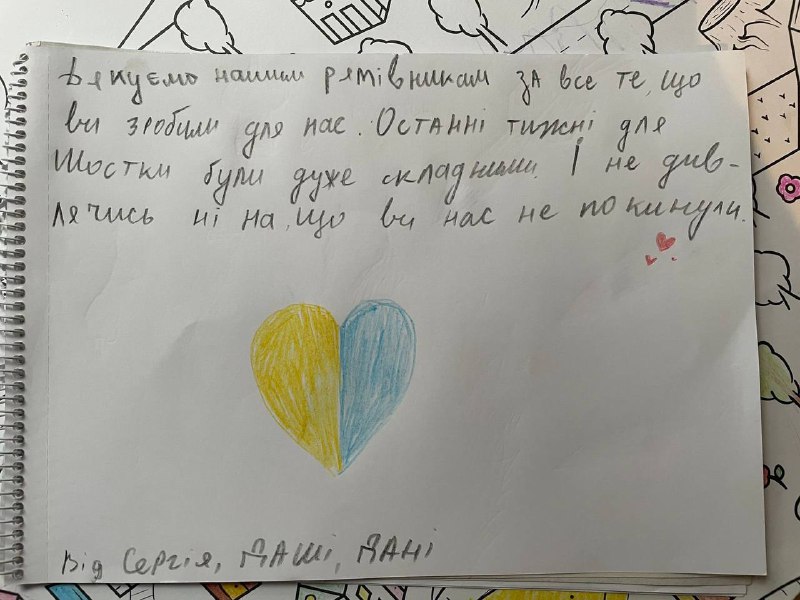 Дякуємо нашим рятівникам за все те, що
ви зробили для нас. Останні тижні для
Шостки були дуже складними. І не див-
лячись ні на, що ви нас не покинули.
Від Сергія, Даші, Дані